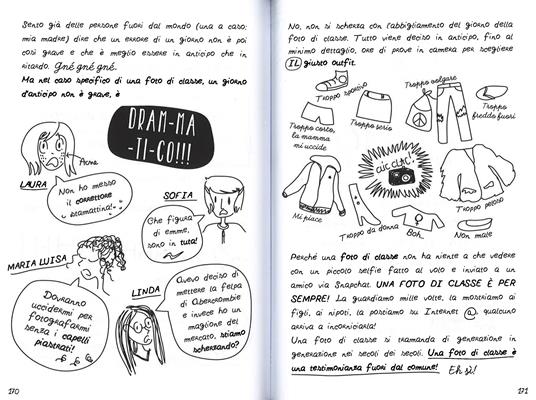 Sento già delle persone fuori dal mondo (una a caso:
mia madre) dire che un errore di un giorno non è poi
così grave e che è meglio essere in anticipo che in
ritardo. Gné gné gné.
Ma nel caso specifico di una foto di classe, un giorno
d'anticipo non è grave, è
DRAM-MA
-TI-CO!!!
Acne
LAURA
Non ho messo
il correttore
stamattina!
SOFIA
Che figura
di emme,
sono in tuta!
MARIA LUISA
Dovranno
uccidermi per
fotografarmi
senza i capelli
piastrati!
LINDA
Avevo deciso di
mettere la felpa
di Abercrombie
e invece ho un
maglione del
mercato, stiamo
scherzando?
170
No, non si scherza con l'abbigliamento del giorno della
foto di classe. Tutto viene deciso in anticipo, fino al
minimo dettaglio, ore di prove in camera per scegliere
IL giusto outfit.
Troppo sportivo
Troppo volgare
Troppo corto,
la mamma
mi uccide
Troppo serio
Troppo
freddo fuori
CLIC CLAC!
Mi piace
Troppo da donna
Boh.
Troppo peloso
Non male
Perché una foto di classe non ha niente a che vedere
con un piccolo selfie fatto al volo e inviato a un
amico via Snapchat. UNA FOTO DI CLASSE È PER
SEMPRE! La guardiamo mille volte, la mostriamo ai
figli, ai nipoti, la postiamo su Internet @, qualcuno
arriva a incorniciarla!
Una foto di classe si tramanda di generazione in
generazione nei secoli dei secoli. Una foto di classe è
una testimonianza fuori dal comune! Eh sì!
171